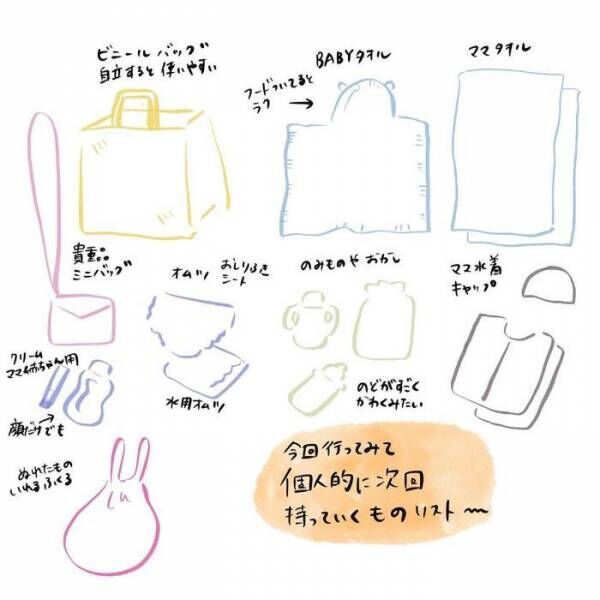 ビニールバッグ
自立すると使いやすい
BABYタオル
フードついてると
ラク
ママタオル
貴重品
ミニバッグ
オムツ
おしりふき
シート
水用オムツ
のみものやおかし
のどがすごく
かわくみたい
ママ水着
キャップ
クリーム
顔だけでも
ぬれたもの
いれるふくろ
今回行ってみて
個人的に次回
持っていくものリスト〜